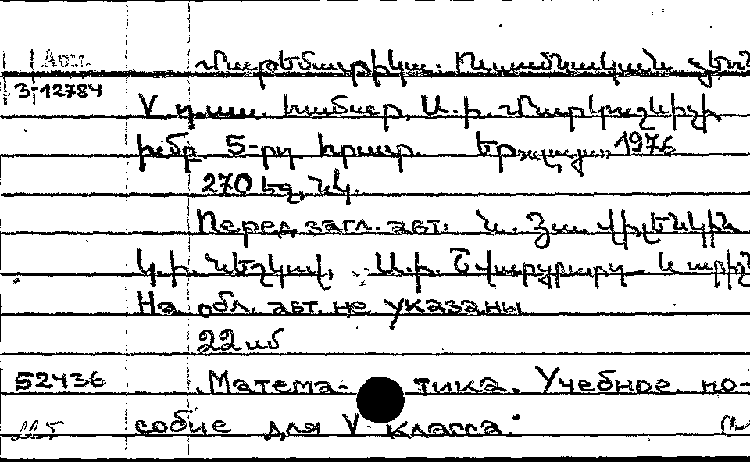 Арм. Մաթեմատիկա. Ուսումնական ձեռն
3-12784
V դաս. համար. Ա. ի. Մարկուշևիչի
խմբ 5-րդ հրատ. Եր., 1976
270 էջ, նկ.
Перед загл. авт. Ն. Յա. Վիլենկին
Կ. ի. Նեշկով, Ա. ի. Շվարցբուրդ և ուրիշ
На обл. авт. не указаны
22 мб
52436 Матема- тика. Учебное по-
собие для V класса.